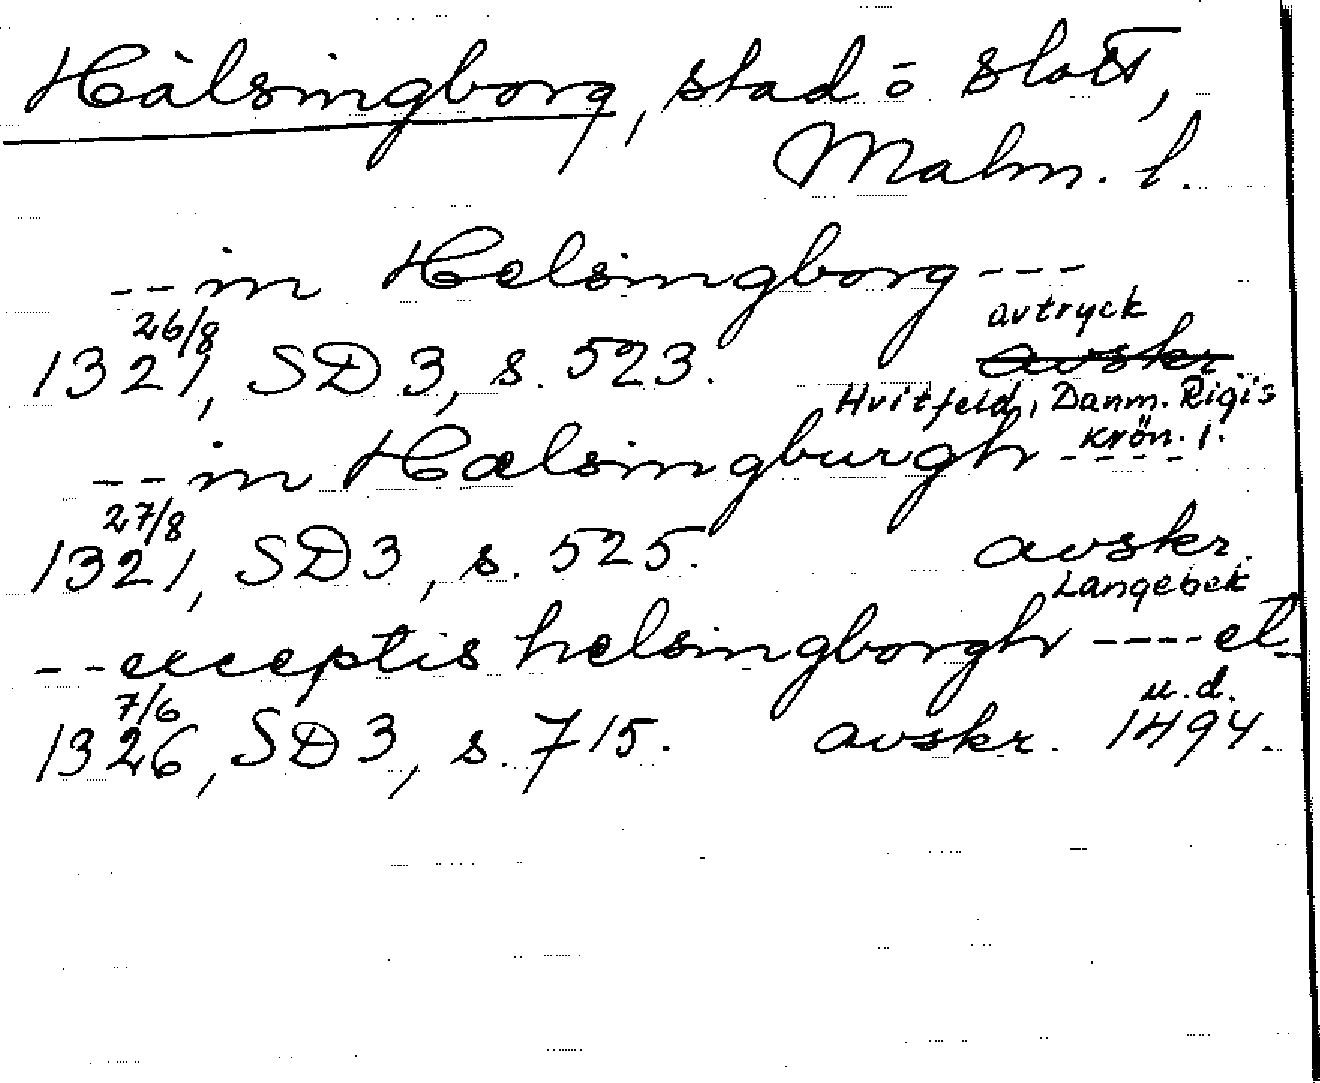 Hälsingborg, stad o slott,
Malm. l.
-- in Helsingborg ---
26/8 avtryck
1321, SD 3, s. 523. avskr
Hvitfeld, Danm. Rigis
-- in Hælsingburgh ---- krön. 1.
27/8
1321, SD 3, s. 525. avskr.
Langebek
-- exceptis helsingborgh ---- et
7/6 u.d.
1326, SD 3, s. 715. avskr. 1494.